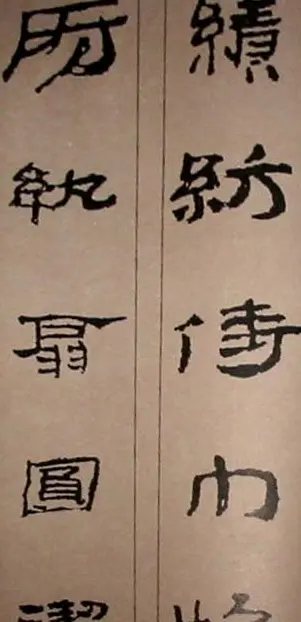 績紡侍巾
房紈扇圓